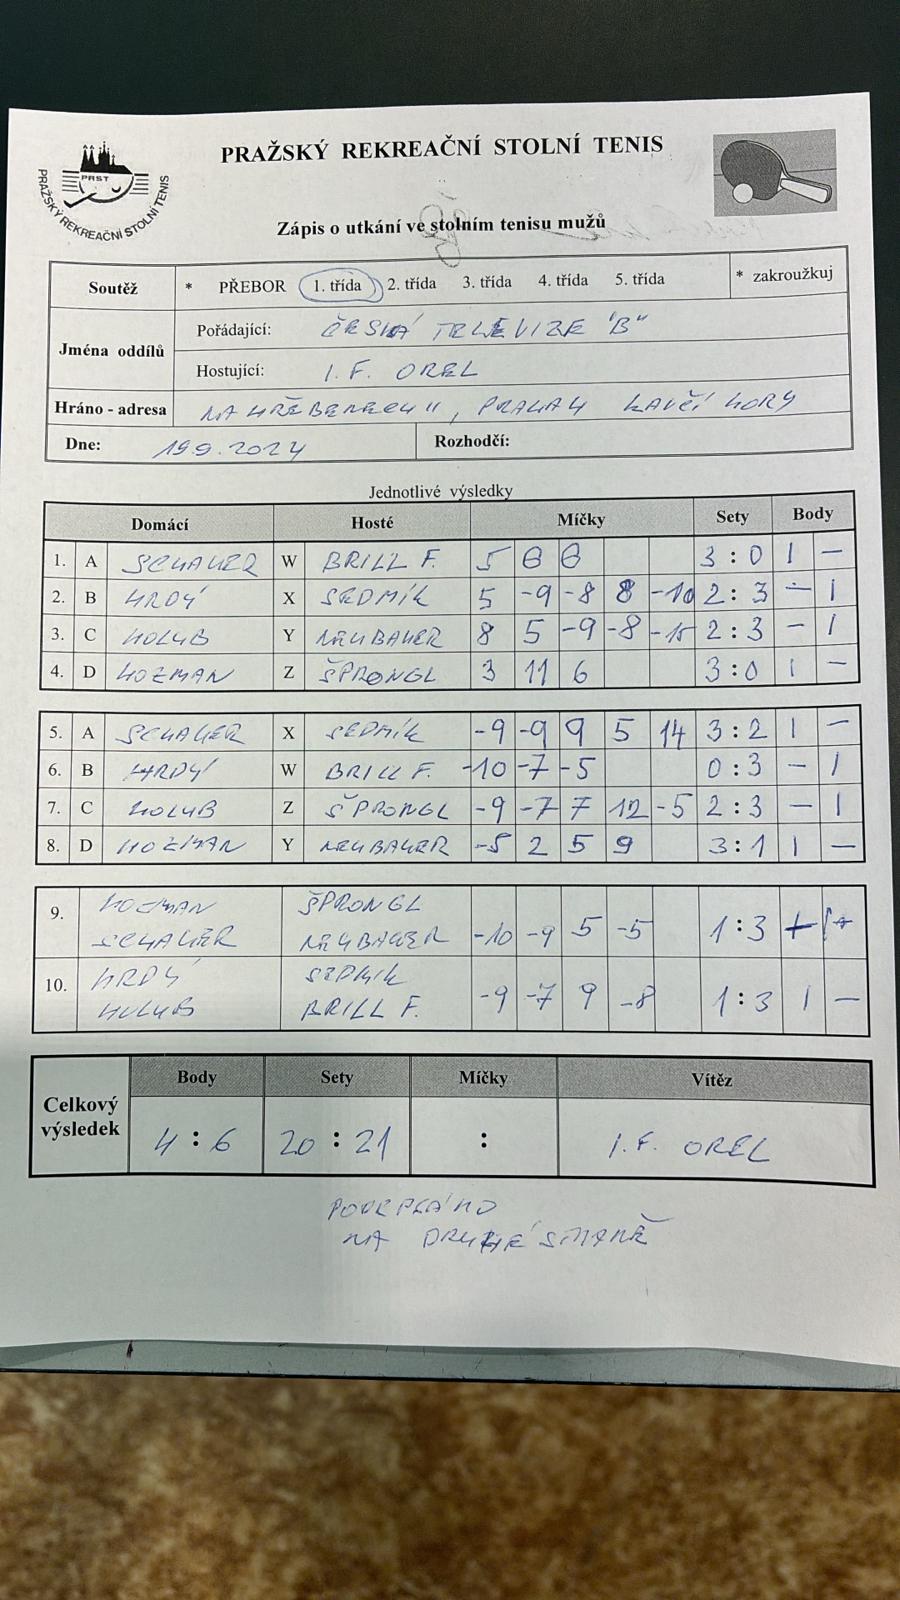 PRAŽSKÝ REKREAČNÍ STOLNÍ TENIS
PRST
PRAŽSKÝ REKREAČNÍ STOLNÍ TENIS
Zápis o utkání ve stolním tenisu mužů
Soutěž * PŘEBOR 1. třída 2. třída 3. třída 4. třída 5. třída * zakroužkuj
Jména oddílů
Pořádající: ČESKÁ TELEVIZE "B"
Hostující: I. F. OREL
Hráno - adresa NA HŘEBENECH II, PRAHA 4 KAVČÍ HORY
Dne: 19.9.2024 Rozhodčí:
Jednotlivé výsledky
Domácí Hosté Míčky Sety Body
1. A SCHAUER W BRILL F. 5 6 6 3 : 0 1 –
2. B HRDÝ X SEDMÍK 5 -9 -8 8 -10 2 : 3 – 1
3. C HOLUB Y NEUBAUER 8 5 -9 -8 -15 2 : 3 – 1
4. D HOZMAN Z ŠPRONGL 3 11 6 3 : 0 1 –
5. A SCHAUER X SEDMÍK -9 -9 9 5 14 3 : 2 1 –
6. B HRDÝ W BRILL F. -10 -7 -5 0 : 3 – 1
7. C HOLUB Z ŠPRONGL -9 -7 7 12 -5 2 : 3 – 1
8. D HOZMAN Y NEUBAUER -5 2 5 9 3 : 1 1 –
9. HOZMAN ŠPRONGL
SCHAUER NEUBAUER -10 -9 5 -5 1 : 3
10. HRDÝ SEDMIK
HOLUB BRILL F. -9 -7 9 -8 1 : 3 1 –
Celkový výsledek
Body Sety Míčky Vítěz
4 : 6 20 : 21 : I. F. OREL
PODEPSÁNO
NA DRUHÉ STRANĚ